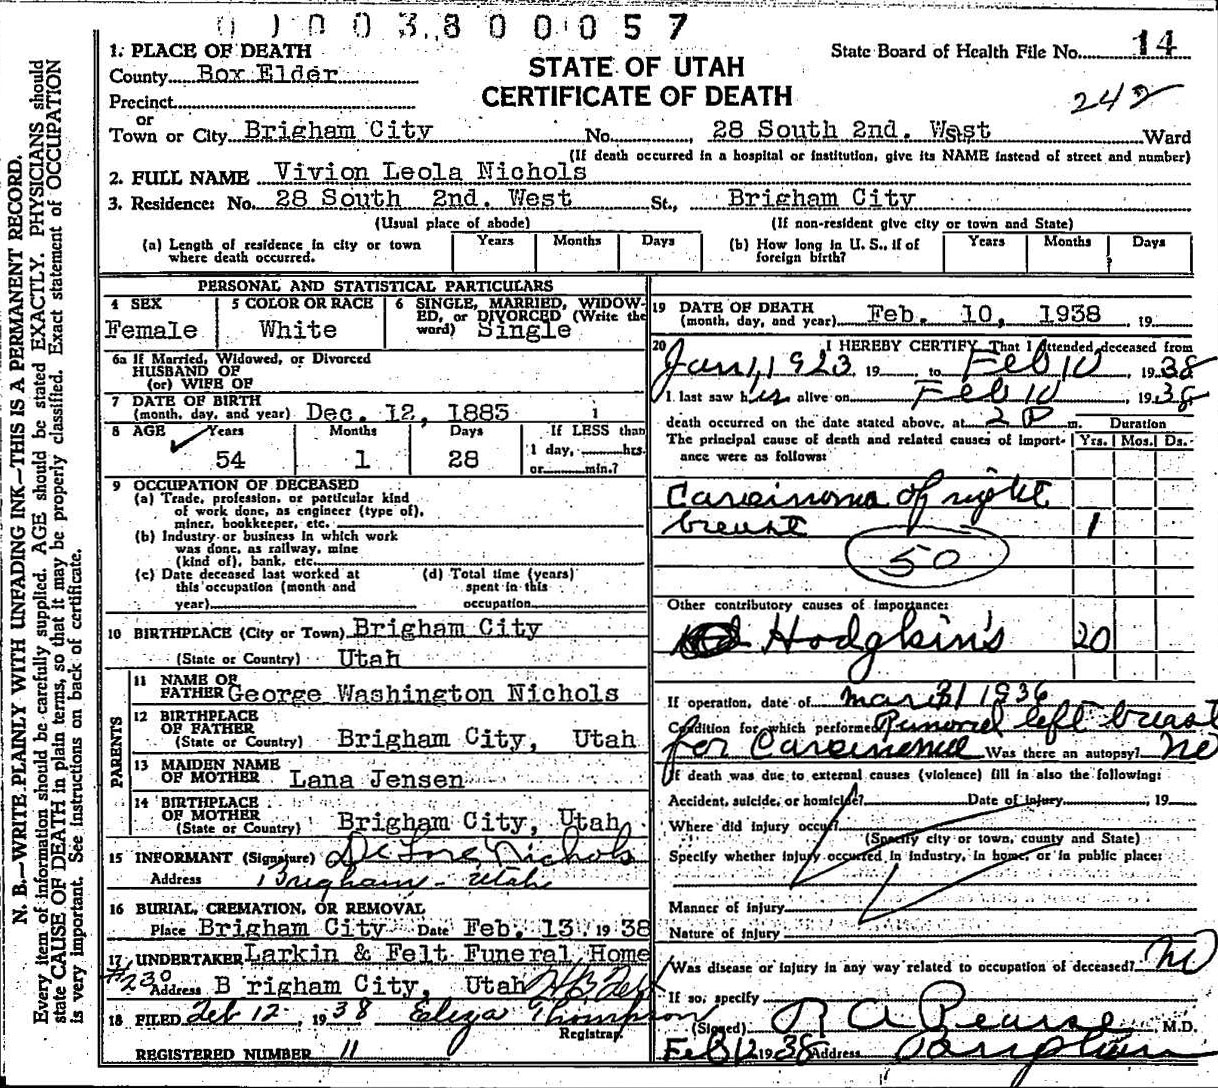 0 1 0 0 3 8 0 0 0 5 7
1. PLACE OF DEATH
County Box Elder
Precinct
or
Town or City Brigham City No. 28 South 2nd. West St. Ward
STATE OF UTAH
CERTIFICATE OF DEATH
State Board of Health File No. 14
242
(If death occurred in a hospital or institution, give its NAME instead of street and number)
2. FULL NAME Vivion Leola Nichols
3. Residence: No. 28 South 2nd. West St., Brigham City
(Usual place of abode) (If non-resident give city or town and State)
(a) Length of residence in city or town where death occurred. Years Months Days
(b) How long in U. S., if of foreign birth? Years Months Days
PERSONAL AND STATISTICAL PARTICULARS
4 SEX Female
5 COLOR OR RACE White
6 SINGLE, MARRIED, WIDOWED, or DIVORCED (Write the word) Single
6a If Married, Widowed, or Divorced
HUSBAND OF
(or) WIFE OF
7 DATE OF BIRTH
(month, day, and year) Dec. 12, 1883
8 AGE Years Months Days If LESS than
54 1 28 1 day, hrs.
or min.?
9 OCCUPATION OF DECEASED
(a) Trade, profession, or particular kind
of work done, as engineer (type of),
miner, bookkeeper, etc.
(b) Industry or business in which work
was done, as railway, mine
(kind of), bank, etc.
(c) Date deceased last worked at
this occupation (month and
year)
(d) Total time (years)
spent in this
occupation
10 BIRTHPLACE (City or Town) Brigham City
(State or Country) Utah
PARENTS
11 NAME OF
FATHER George Washington Nichols
12 BIRTHPLACE
OF FATHER
(State or Country) Brigham City, Utah
13 MAIDEN NAME
OF MOTHER Lana Jensen
14 BIRTHPLACE
OF MOTHER
(State or Country) Brigham City, Utah
15 INFORMANT (Signature) Nichols
Address Brigham - Utah
16 BURIAL, CREMATION, OR REMOVAL
Place Brigham City Date Feb. 13, 1938
17 UNDERTAKER Larkin & Felt Funeral Home
#230
Address B righam City, Utah
18 FILED Feb 12, 1938 Eliza Thompson
Registrar
REGISTERED NUMBER 11
19 DATE OF DEATH
(month, day, and year) Feb. 10, 1938 , 19
20 I HEREBY CERTIFY, That I attended deceased from
Jan 1, 1923 19 to Feb 10, 1938
I last saw his alive on Feb 10, 1938
death occurred on the date stated above, at 2 P m. Duration
The principal cause of death and related causes of importance were as follows: Yrs. Mos. Ds.
Carcinoma of right
breast 1
50
Other contributory causes of importance:
Hodgkin's 20
If operation, date of mar 31 1936
Condition for which performed Removal left breast
for Carcinoma Was there an autopsy? No
If death was due to external causes (violence) fill in also the following:
Accident, suicide, or homicide? Date of injury , 19
Where did injury occur?
(Specify city or town, county and State)
Specify whether injury occurred in industry, in home, or in public place:
Manner of injury
Nature of injury
Was disease or injury in any way related to occupation of deceased? No
If so, specify
(Signed) R A Pearse, M.D.
Feb 12 1938 Address Brigham
N. B.—WRITE PLAINLY WITH UNFADING INK—THIS IS A PERMANENT RECORD.
Every item of information should be carefully supplied. AGE should be stated EXACTLY. PHYSICIANS should
state CAUSE OF DEATH in plain terms, so that it may be properly classified. Exact statement of OCCUPATION
is very important. See instructions on back of certificate.